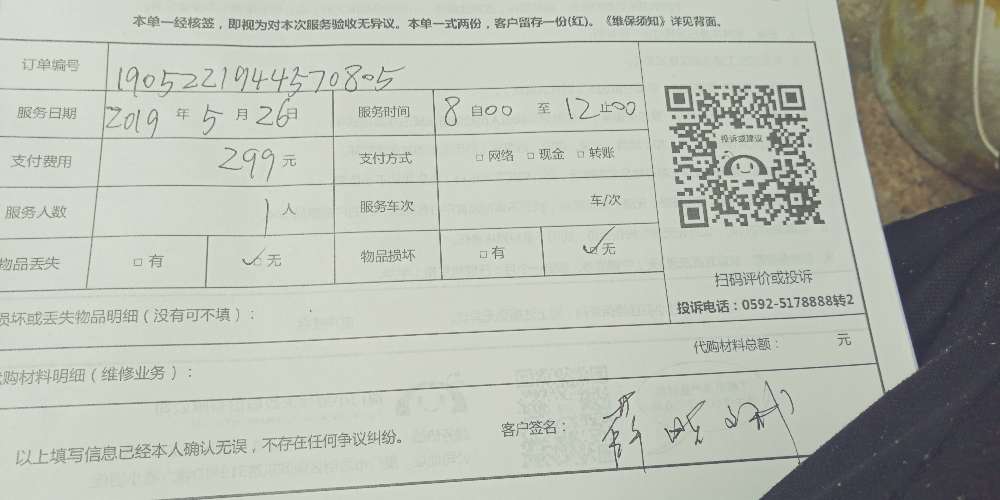 本单一经核签，即视为对本次服务验收无异议。本单一式两份，客户留存一份(红)。《维保须知》详见背面。
订单编号 190522194443570805
服务日期 2019 年 5 月 26 日 服务时间 8 自00 至 12 止00
支付费用 299 元 支付方式 □ 网络 □ 现金 □ 转账
服务人数 1 人 服务车次 车/次
物品丢失 □ 有 ✓□ 无 物品损坏 □ 有 ✓□ 无
投诉或建议
扫码评价或投诉
投诉电话：0592-5178888转2
损坏或丢失物品明细（没有可不填）：
代购材料明细（维修业务）： 代购材料总额： 元
以上填写信息已经本人确认无误，不存在任何争议纠纷。 客户签名：